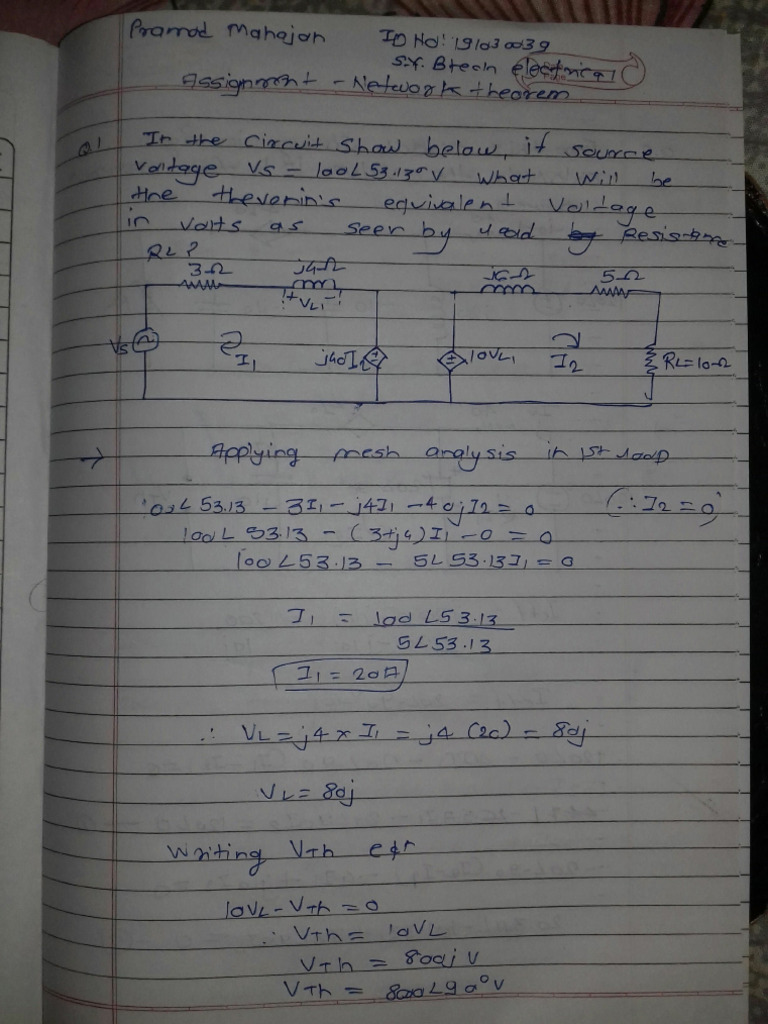 Pramod Mahajan ID No: 191030039
S.Y. Btech electrical
Assignment - Network theorem
Q1 In the circuit show below, if source
voltage Vs = 100∠53.13° V what will be
the thevenin's equivalent voltage
in volts as seer by load by Resistance
RL?
3Ω j4Ω j6Ω 5Ω
+ VL1 -
Vs I1 j40I2 10VL1 I2 RL=10Ω
→ Applying mesh analysis in 1st loop
100∠53.13 - 3I1 - j4I1 - 40jI2 = 0 (∵ I2 = 0)
100∠53.13 - (3+j4)I1 - 0 = 0
100∠53.13 - 5∠53.13I1 = 0
I1 = 100∠53.13
5∠53.13
I1 = 20A
∴ VL = j4 × I1 = j4 (20) = 80j
VL = 80j
Writing VTh eqn
10VL - VTh = 0
∴ VTh = 10VL
VTh = 800j V
VTh = 800∠90° V